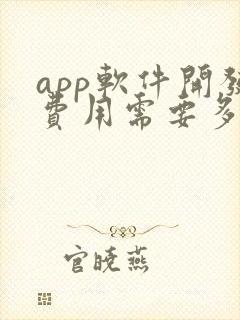 app軟件開發
費用需要多
官曉燕